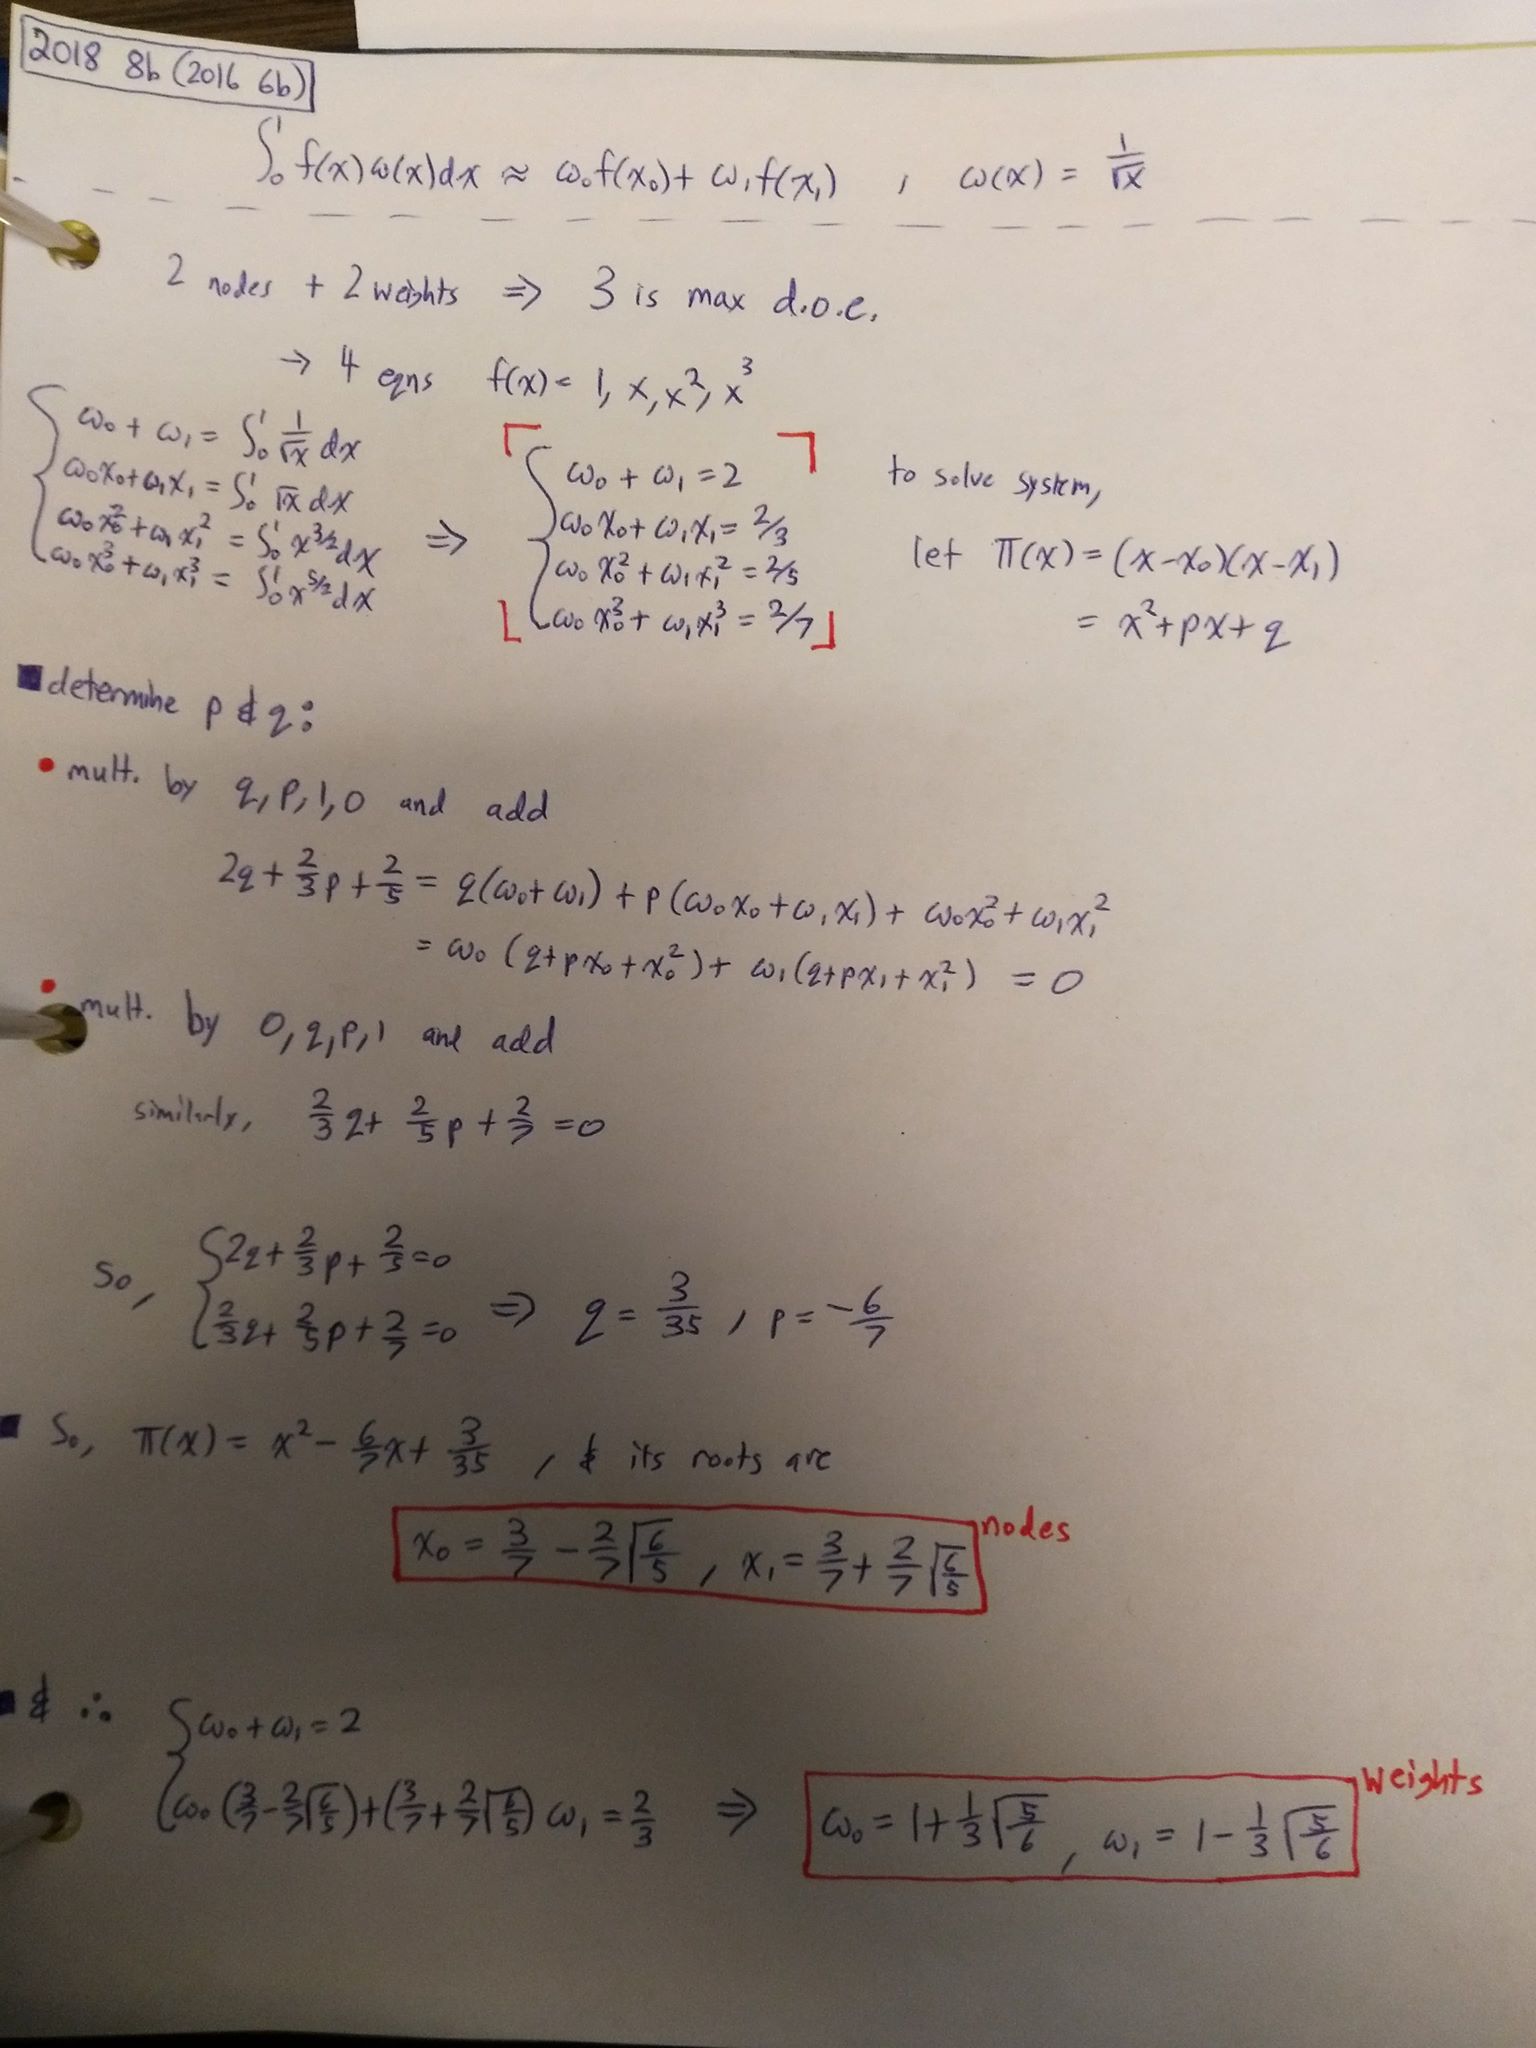 2018 8b (2016 6b)
∫₀¹ f(x)ω(x)dx ≈ ω₀f(x₀) + ω₁f(x₁) , ω(x) = 1/√x
2 nodes + 2 weights ⇒ 3 is max d.o.e.
→ 4 eqns f(x) = 1, x, x², x³
ω₀ + ω₁ = ∫₀¹ 1/√x dx
ω₀x₀ + ω₁x₁ = ∫₀¹ √x dx
ω₀x₀² + ω₁x₁² = ∫₀¹ x^(3/2) dx
ω₀x₀³ + ω₁x₁³ = ∫₀¹ x^(5/2) dx
⇒
ω₀ + ω₁ = 2
ω₀x₀ + ω₁x₁ = 2/3
ω₀x₀² + ω₁x₁² = 2/5
ω₀x₀³ + ω₁x₁³ = 2/7
to solve system,
let π(x) = (x-x₀)(x-x₁)
= x² + px + q
determine p & q:
• mult. by q, p, 1, 0 and add
2q + 2/3 p + 2/5 = q(ω₀+ω₁) + p(ω₀x₀+ω₁x₁) + ω₀x₀² + ω₁x₁²
= ω₀(q+px₀+x₀²) + ω₁(q+px₁+x₁²) = 0
• mult. by 0, q, p, 1 and add
similarly, 2/3 q + 2/5 p + 2/7 = 0
So, { 2q + 2/3 p + 2/5 = 0
2/3 q + 2/5 p + 2/7 = 0 ⇒ q = 3/35 , p = -6/7
So, π(x) = x² - 6/7 x + 3/35 , & its roots are
x₀ = 3/7 - 2/7 √(6/5) , x₁ = 3/7 + 2/7 √(6/5) nodes
& ∴ { ω₀ + ω₁ = 2
ω₀(3/7 - 2/7 √(6/5)) + (3/7 + 2/7 √(6/5)) ω₁ = 2/3 ⇒ ω₀ = 1 + 1/3 √(5/6) , ω₁ = 1 - 1/3 √(5/6) weights